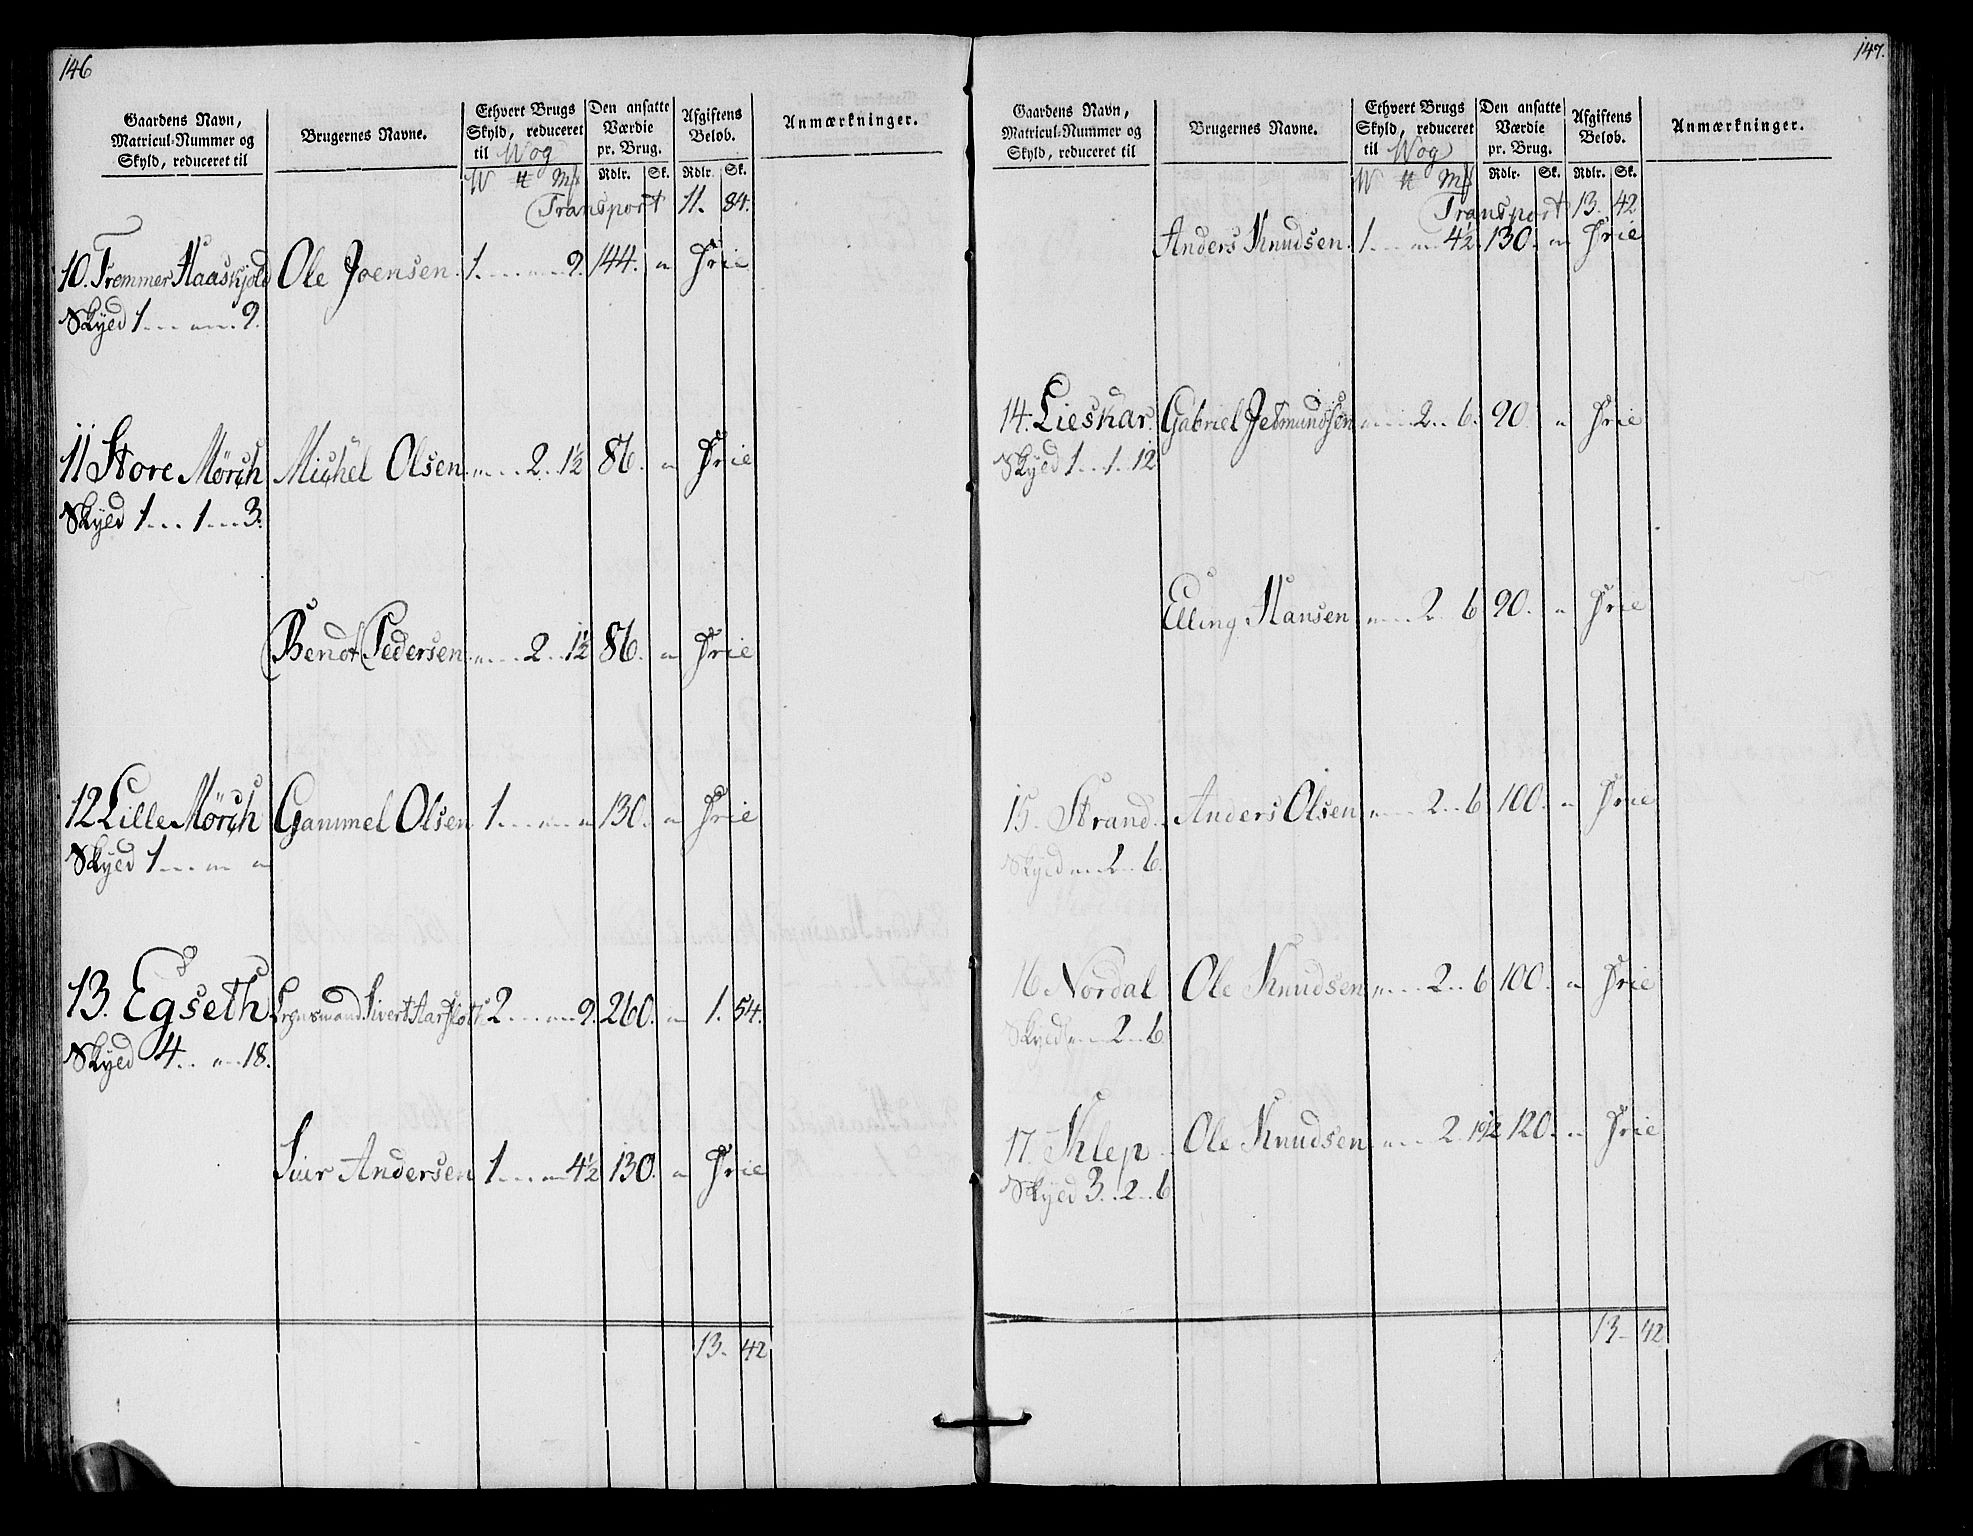 146
Gaardens Navn, Matricul-Nummer og Skyld, reduceret til
Brugernes Navne.
Ethvert Brugs Skyld, reduceret til Wog
Den ansatte Værdie pr. Brug.
Afgiftens Belob.
Anmærkninger.
W ℔ Mk Rdlr. Sk. Rdlr. Sk.
Transport 11. 84.
10. Trommer Haaskjold Ole Joensen. 1. . . . „ . . 9. 144. „ Frie
Skyld 1 . . . „ . . . 9.
11 Store Mörch Michel Olsen. „ . . . 2. . 1½ 86. „ Frie
Skyld 1 . . . 1 . . . 3.
Bendt Pedersen „ . . . 2 . . 1½ 86. „ Frie
12 Lille Mörch Gammel Olsen 1 . . . „ . . „ 130. „ Frie
Skyld 1 . . . „ „
13. Egseth Lensmand Sivert Harfloth 2 . . . „ . . 9. 260. „ 1. 54.
Skyld 4 . . „ . . 18.
Siver Andersen 1 . . . „ . . 4½ 130. „ Frie
13. 42
147.
Gaardens Navn, Matricul-Nummer og Skyld, reduceret til
Brugernes Navne.
Ethvert Brugs Skyld, reduceret til Wog
Den ansatte Værdie pr. Brug.
Afgiftens Belob.
Anmærkninger.
W ℔ Mk Rdlr. Sk. Rdlr. Sk.
Transport 13. 42
Anders Knudsen. 1 . . . „ . . 4½ 130. „ Frie
14. Lieskar Gabriel Jetmundsen „ . . . 2 . . 6. 90. „ Frie
Skyld 1 . . 1 . . 12
Elling Hansen „ . . . 2 6 90. „ Frie
15. Strand. Anders Olsen „ . . . 2 . . 6 100. „ Frie
Skyld „ . . 2 . . 6.
16 Nordal Ole Knudsen „ . . . 2 . . 6 100. „ Frie
Skyld „ . . 2 . . 6
17. Klep Ole Knudsen „ . . . 2. 19½ 120. „ Frie
Skyld 3. . 2 . . 6
13 – 42